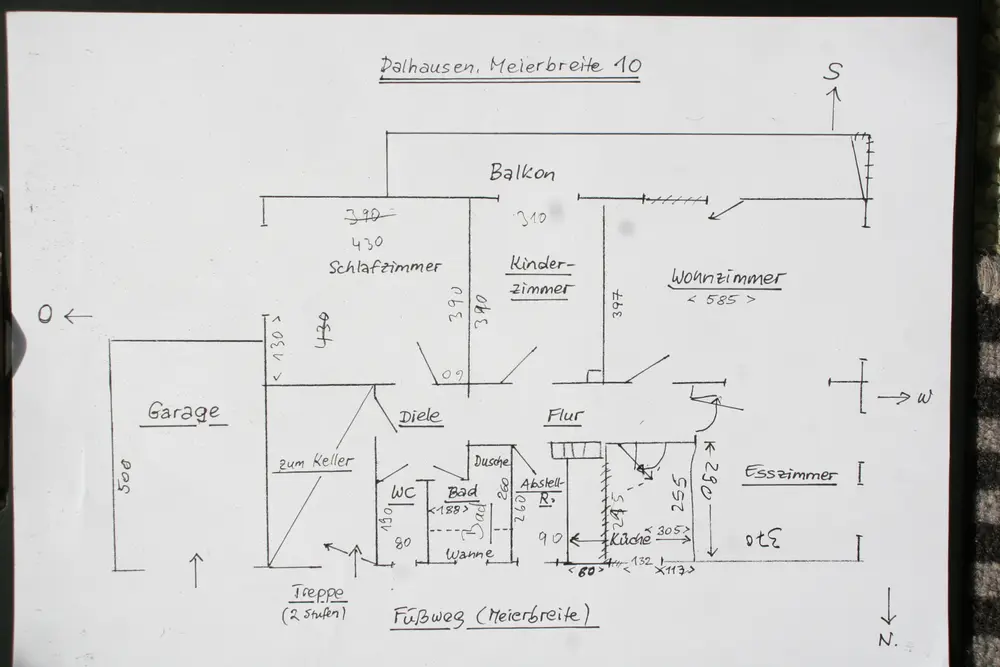 Dalhausen, Meierbreite 10
S
Balkon
390
430
Schlafzimmer
310
Kinder-
zimmer
Wohnzimmer
< 585 >
390
390
397
O
< 130 >
430
60
W
Garage
500
Diele
Flur
zum Keller
WC
190
80
Bad
<188>
Bad
Wanne
Dusche
260
260
Abstell-
R.
90
Küche
< 305 >
245
255
260
Esszimmer
370
< 80 >
< 132
117 >
Treppe
(2 Stufen)
Fußweg (Meierbreite)
N.